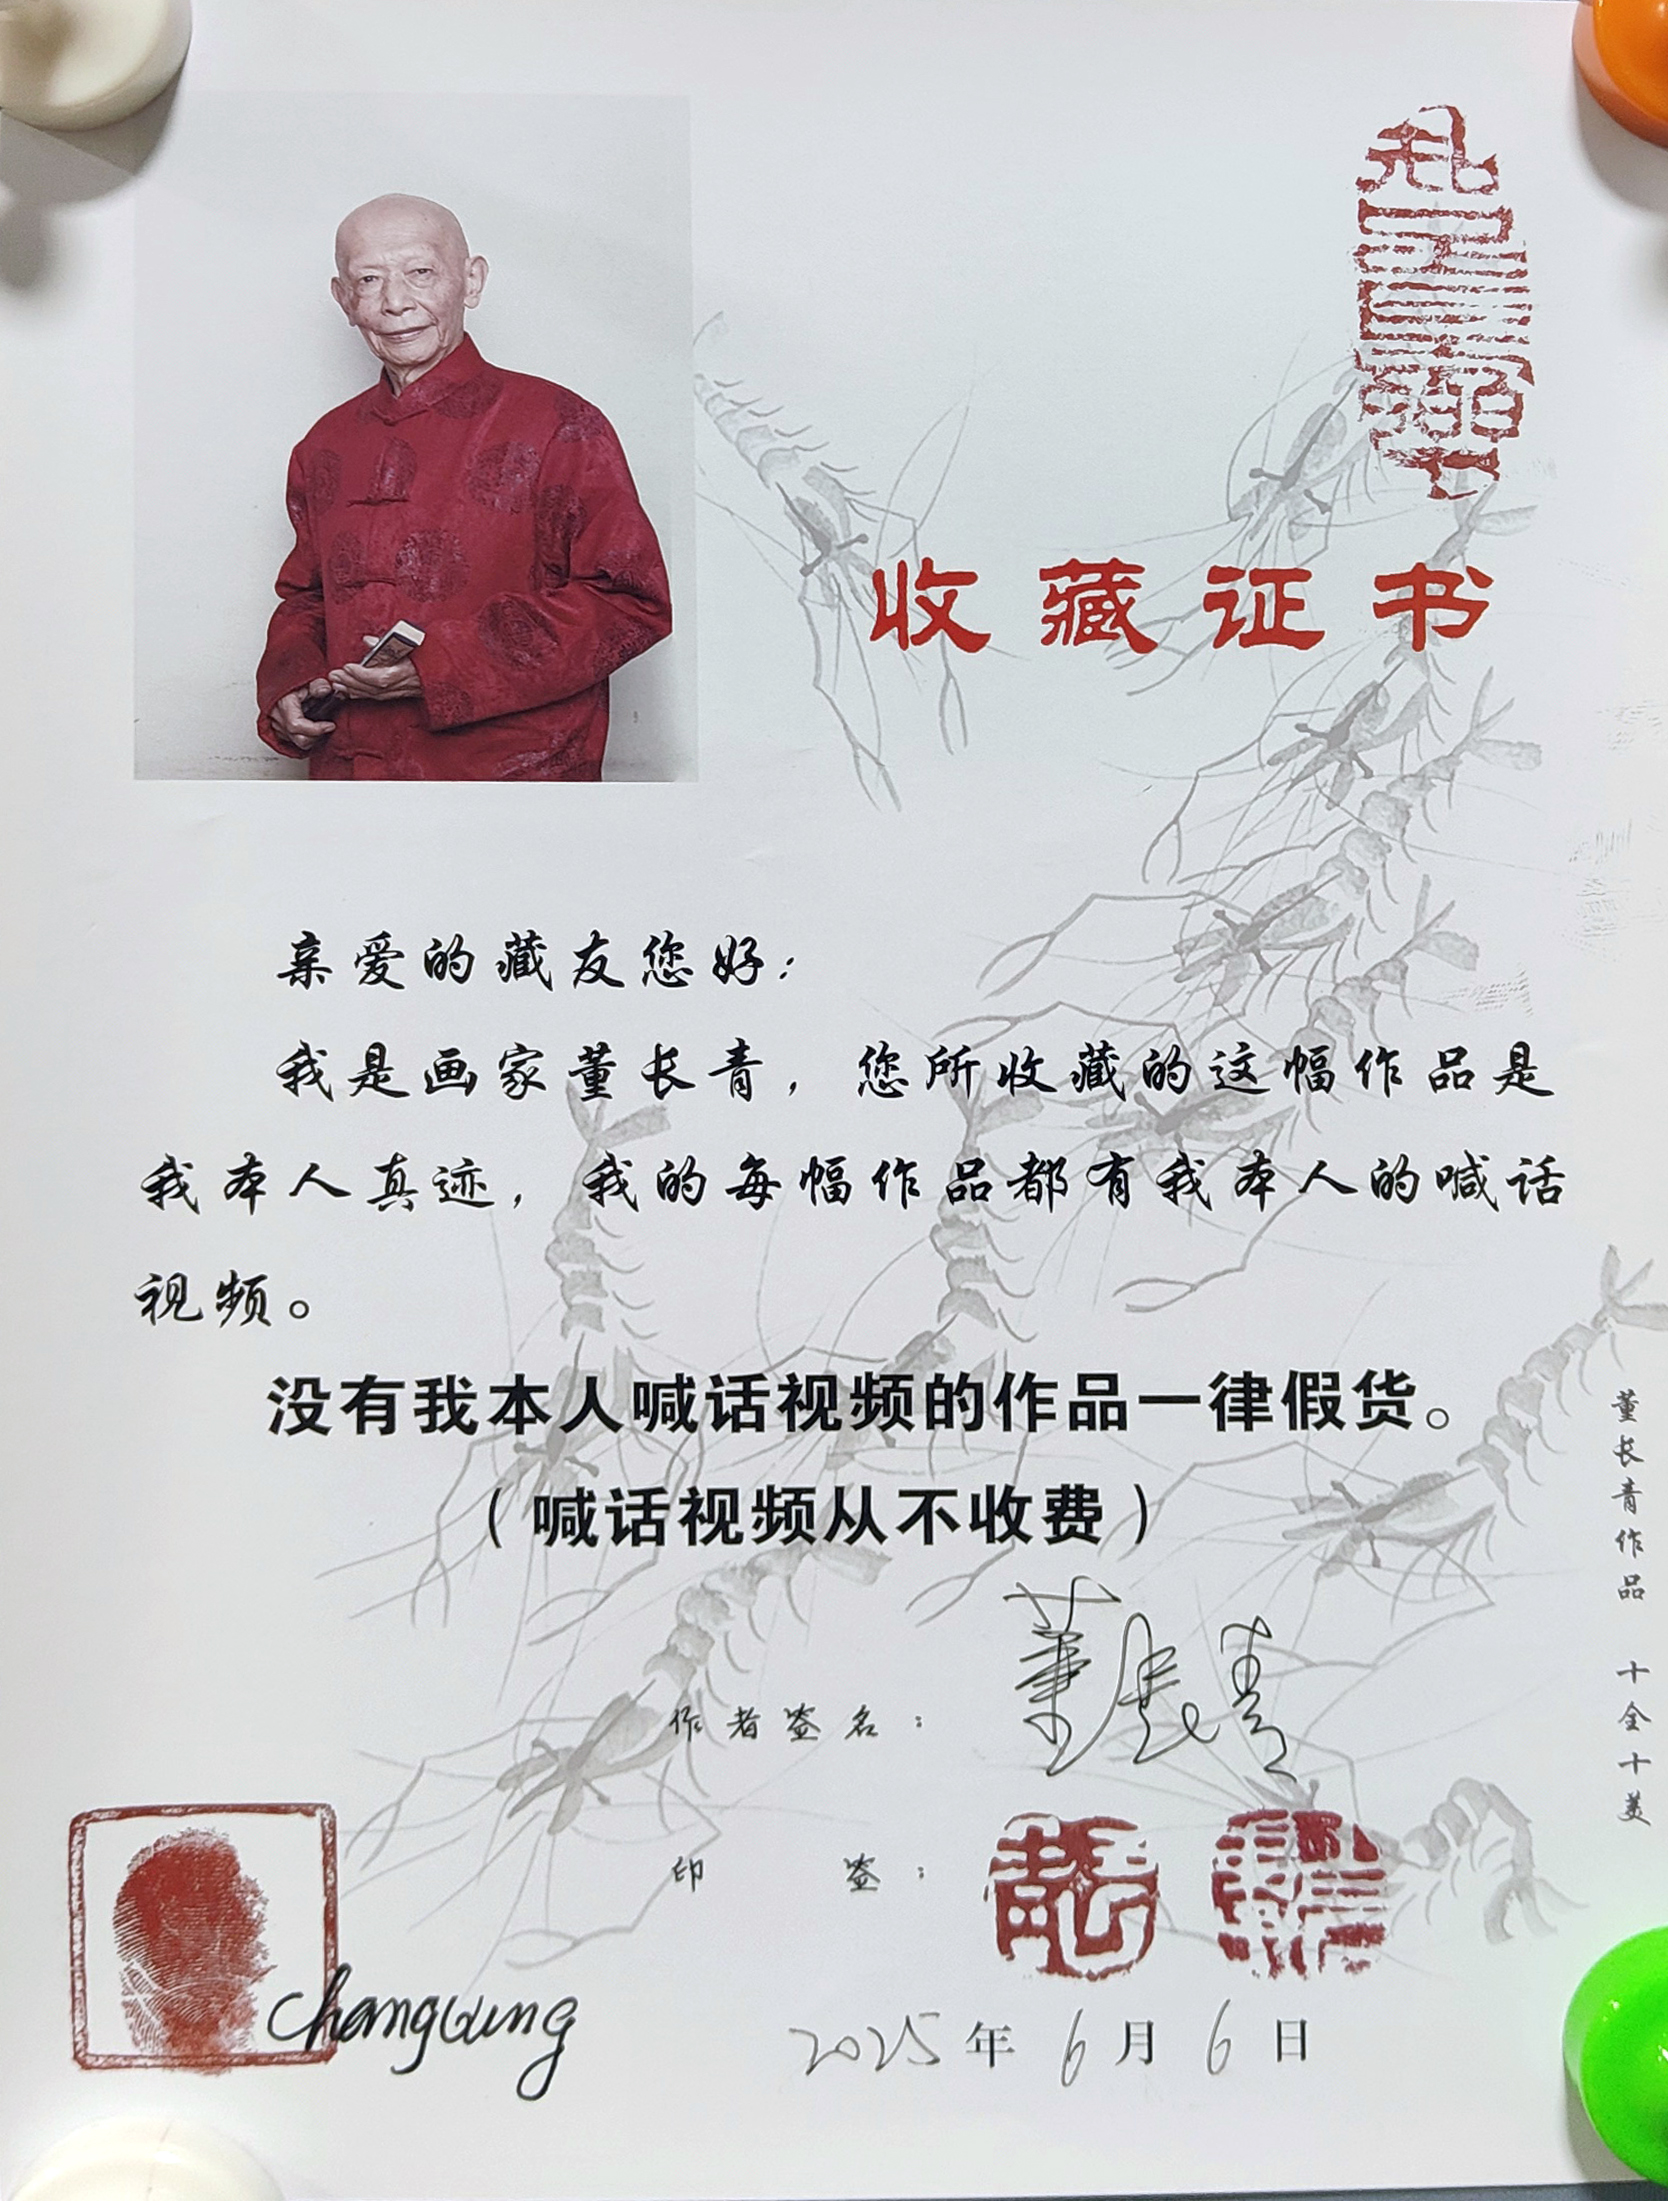 收藏证书
亲爱的藏友您好：
我是画家董长青，您所收藏的这幅作品是
我本人真迹，我的每幅作品都有我本人的喊话
视频。
没有我本人喊话视频的作品一律假货。
（喊话视频从不收费）
作者签名：董长青
印 签：
2025年6月6日
changqing
董长青作品 十全十美